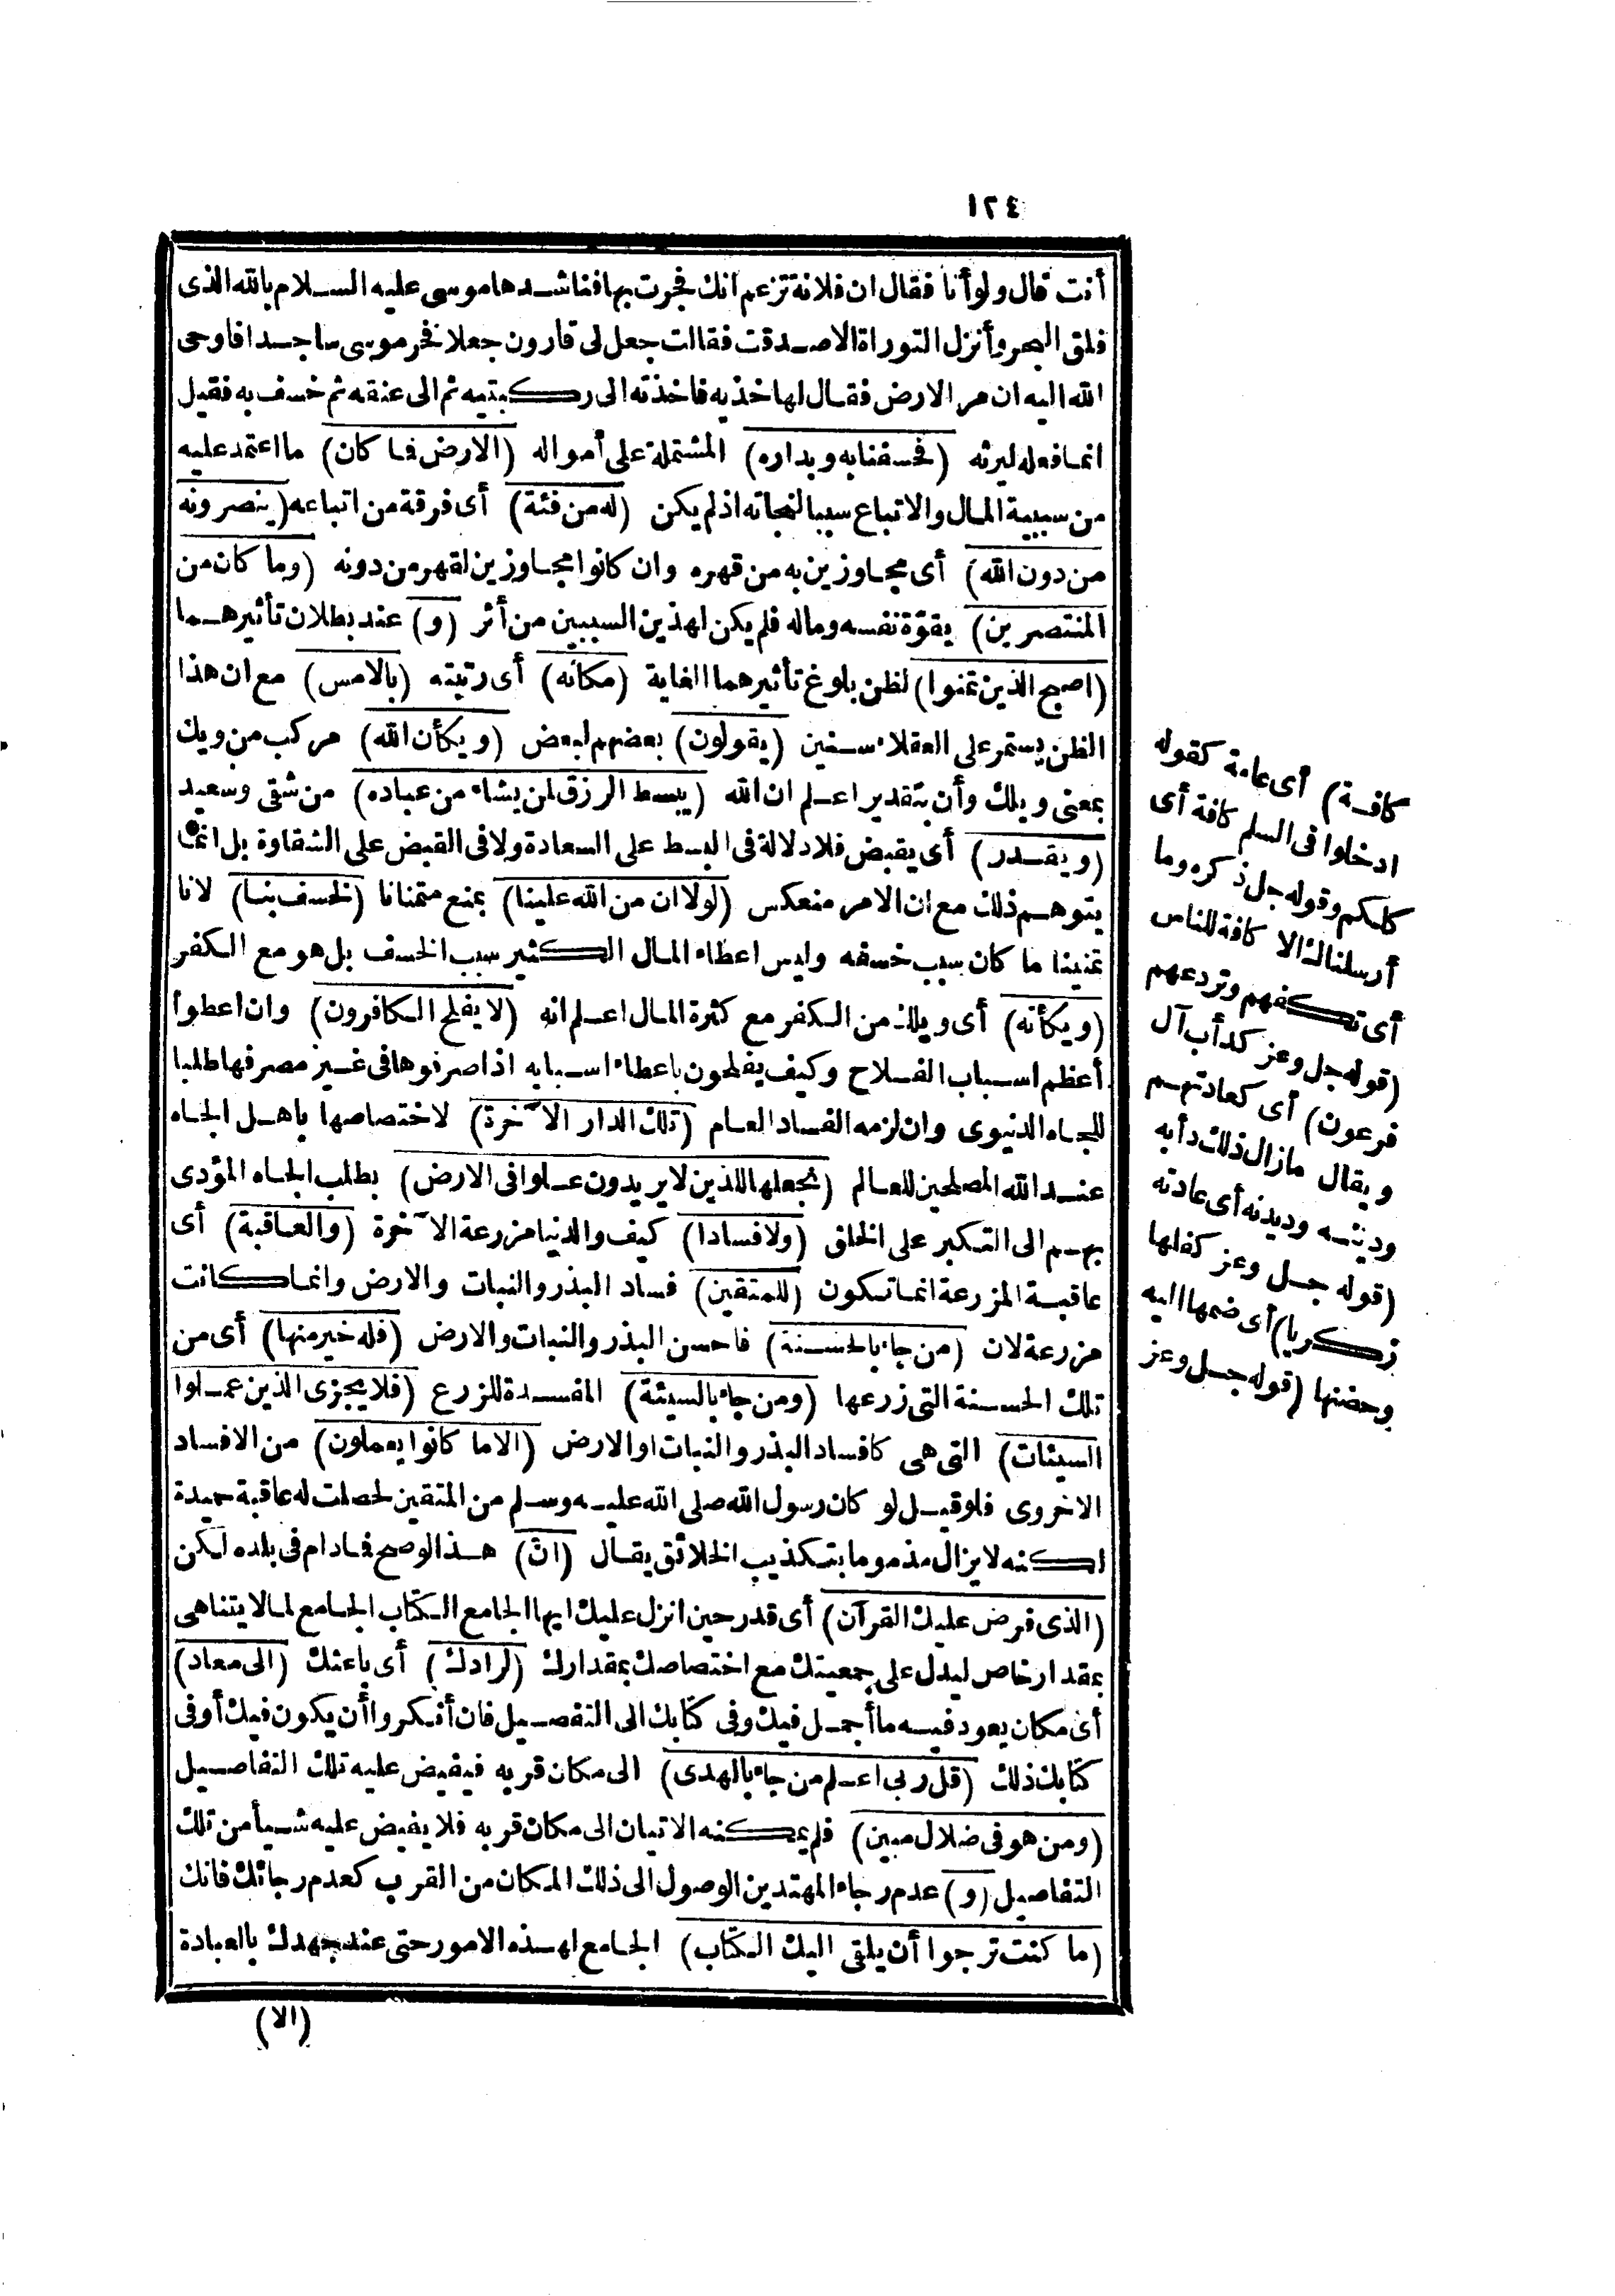 ١٢٤
أنت قال ولو أنا فقال ان فلانة تزعم انك فجرت بها فناشدها موسى عليه السلام بالله الذى
فلق البحر وأنزل التوراة الا صدقت فقالت جعل لى قارون جعلا فخر موسى ساجدا فاوحى
الله اليه ان مر الارض فقال لها خذيه فاخذته الى ركبتيه ثم الى عنقه ثم خسف به فقيل
انما فعله ليرثه (فخسفنا به وبداره) المشتملة على أمواله (الارض فما كان) ما اعتمد عليه
من سببية المال والاتباع سببا لنجاته اذ لم يكن (له من فئة) أى فرقة من اتباعه (ينصرونه
من دون الله) أى مجاوزين به من قهره وان كانوا مجاوزين لقهر من دونه (وما كان من
المنتصرين) بقوّة نفسه وماله فلم يكن لهذين السببين من أثر (و) عند بطلان تأثيرهما
(اصبح الذين تمنوا) لظن بلوغ تأثيرهما الغاية (مكانه) أى رتبته (بالامس) مع ان هذا
الظن يستمر على العقلاء سنين (يقولون) بعضهم لبعض (ويكأن الله) مركب من ويك
بمعنى ويلك وأن بتقدير اعلم ان الله (يبسط الرزق لمن يشاء من عباده) من شقى وسعيد
(ويقدر) أى يقبض فلا دلالة فى البسط على السعادة ولا فى القبض على الشقاوة بل انما
يتوهم ذلك مع ان الامر منعكس (لولا ان من الله علينا) بمنع متمنانا (لخسف بنا) لانا
تمنينا ما كان سبب خسفه وليس اعطاء المال الكثير سبب الخسف بل هو مع الكفر
(ويكأنه) أى ويلك من الكفر مع كثرة المال اعلم انه (لا يفلح الكافرون) وان اعطوا
أعظم اسباب الفلاح وكيف يفلحون باعطاء اسبابه اذا صرفوها فى غير مصرفها طلبا
للجاه الدنيوى وان لزمه الفساد العام (تلك الدار الآخرة) لاختصاصها باهل الجاه
عند الله المصلحين للعالم (نجعلها للذين لا يريدون علوا فى الارض) بطلب الجاه المؤدى
بهم الى التكبر على الخلق (ولا فسادا) كيف والدنيا مزرعة الآخرة (والعاقبة) أى
عاقبة المزرعة انما تكون (للمتقين) فساد البذر والنبات والارض وانما كانت
مزرعة لان (من جاء بالحسنة) فاحسن البذر والنبات والارض (فله خير منها) أى من
تلك الحسنة التى زرعها (ومن جاء بالسيئة) المفسدة للزرع (فلا يجزى الذين عملوا
السيئات) التى هى كافساد البذر والنبات او الارض (الا ما كانوا يعملون) من الافساد
الاخروى فلو قيل لو كان رسول الله صلى الله عليه وسلم من المتقين لحصلت له عاقبة حميدة
لكنه لا يزال مذموما بتكذيب الخلائق يقال (انّ) هذا لو صح فما دام فى بلده لكن
(الذى فرض عليك القرآن) أى قدر حين انزل عليك ايها الجامع الكتاب الجامع لما لا يتناهى
بمقدار خاص ليدل على جمعيتك مع اختصاصك بمقدارك (لرادك) أى باعثك (الى معاد)
أى مكان يعود فيه ما أجمل فيك وفى كتابك الى التفصيل فان أنكروا أن يكون فيك أو فى
كتابك ذلك (قل ربى اعلم من جاء بالهدى) الى مكان قربه فيفيض عليه تلك التفاصيل
(ومن هو فى ضلال مبين) فلم يمكنه الاتيان الى مكان قربه فلا يفيض عليه شيأ من تلك
التفاصيل (و) عدم رجاء المهتدين الوصول الى ذلك المكان من القرب كعدم رجائك فانك
(ما كنت ترجوا أن يلقى اليك الكتاب) الجامع لهذه الامور حتى عند جهدك بالعبادة
(الا)
كافة) أى عامة كقوله
ادخلوا فى السلم كافة أى
كلكم وقوله جل ذكره وما
أرسلناك الا كافة للناس
أى تكفهم وتردعهم
(قوله جل وعز كدأب آل
فرعون) أى كعادتهم
ويقال مازال ذلك دأبه
ودينه وديدنه أى عادته
(قوله جل وعز كفلها
زكريا) أى ضمها اليه
وحضنها (قوله جل وعز